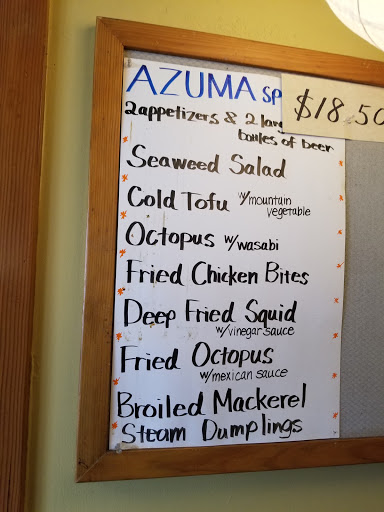 AZUMA SP
$18.50
2appetizers & 2 larg
boules of beer
Seaweed Salad
Cold Tofu w/mountain
vegetable
Octopus w/wasabi
Fried Chicken Bites
Deep Fried Squid
w/vinegar sauce
Fried Octopus
w/mexican sauce
Broiled Mackerel
Steam Dumplings